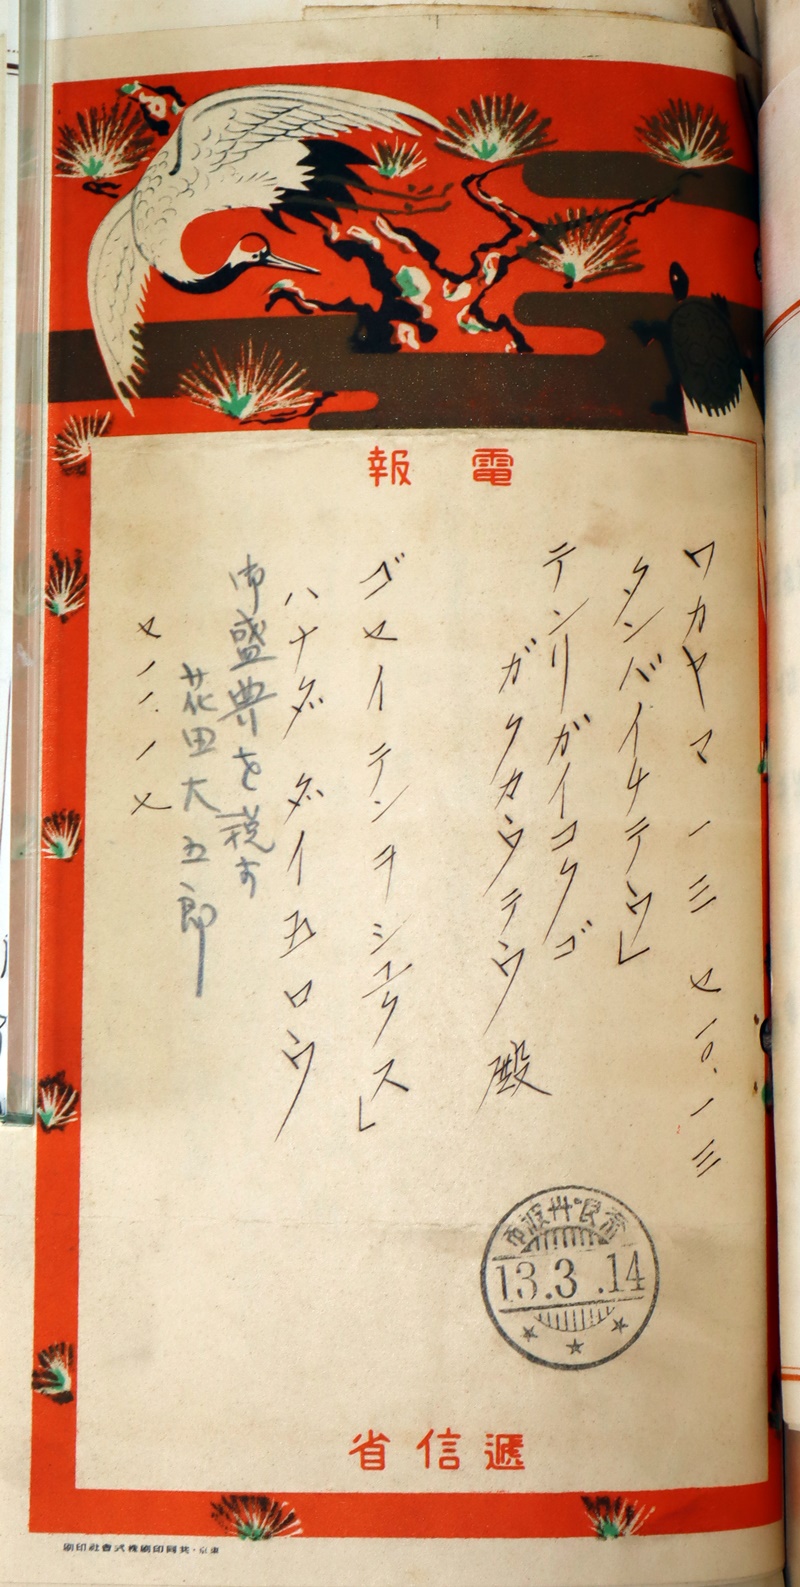 電報
ワカヤマ 一三 七 一〇、一三
タンバイチテウ」
テンリガイコクゴ
ガクカウテウ殿
ゴセイテンヲシユクス」
ハナダ ダイ五ロウ
御盛典を祝す
花田大五郎
七 一一、一七
奈良・丹波市
13.3.14
遞信省
東京・共同印刷株式會社印刷